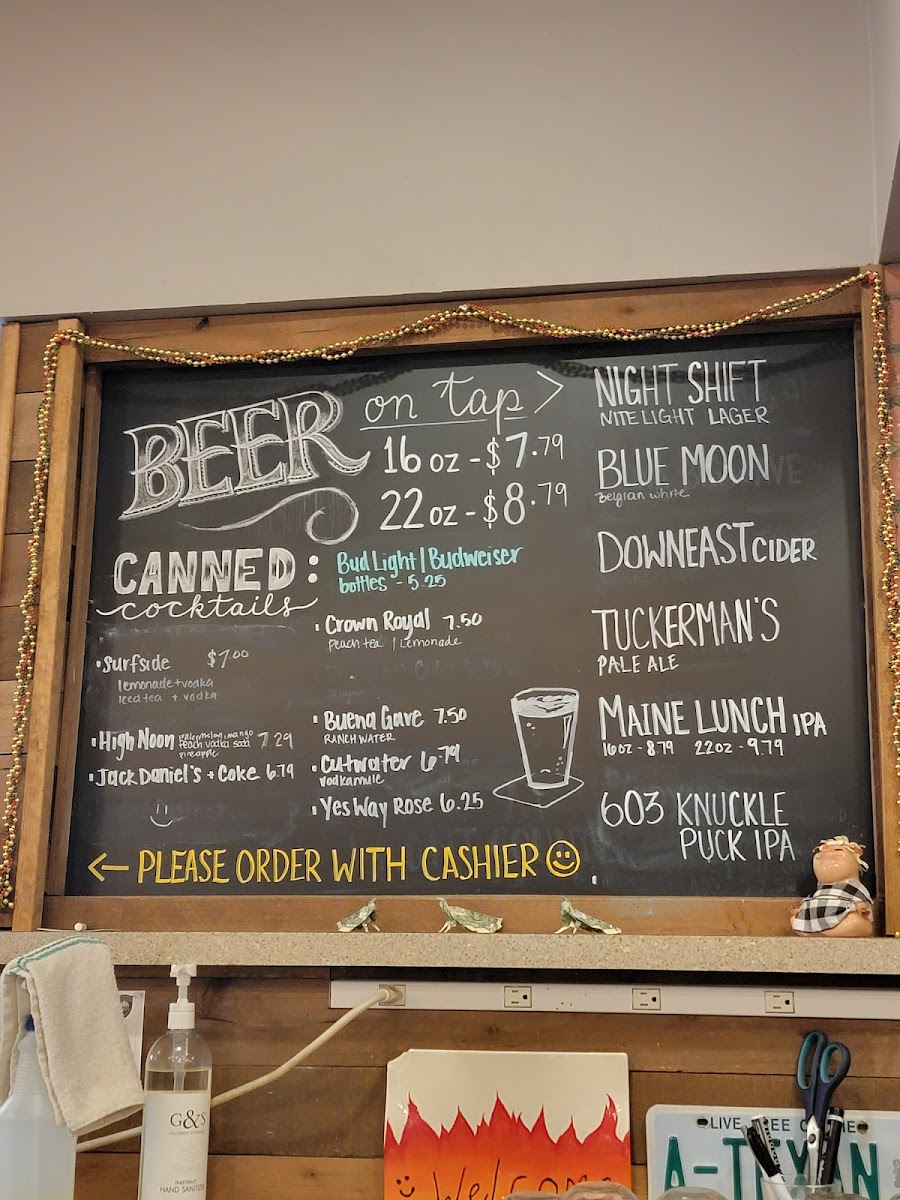 BEER on tap >
16 oz - $7.79
22 oz - $8.79
NIGHT SHIFT
NITE LIGHT LAGER
BLUE MOON
Belgian white
DOWNEAST CIDER
TUCKERMAN'S
PALE ALE
MAINE LUNCH IPA
16oz - 8.79 22oz - 9.79
603 KNUCKLE
PUCK IPA
CANNED :
cocktails
Bud Light | Budweiser
bottles - 5.25
• Surfside $7.00
lemonade + vodka
iced tea + vodka
• High Noon 7.29
watermelon, mango
Peach vodka soda
pineapple
• Jack Daniel's + Coke 6.79
• Crown Royal 7.50
peach tea | Lemonade
• Buena Gave 7.50
RANCH WATER
• Cutwater 6.79
vodka mule
• Yes Way Rose 6.25
← PLEASE ORDER WITH CASHIER
G&S
INSTANT
HAND SANITIZER
Welcome
LIVE FREE